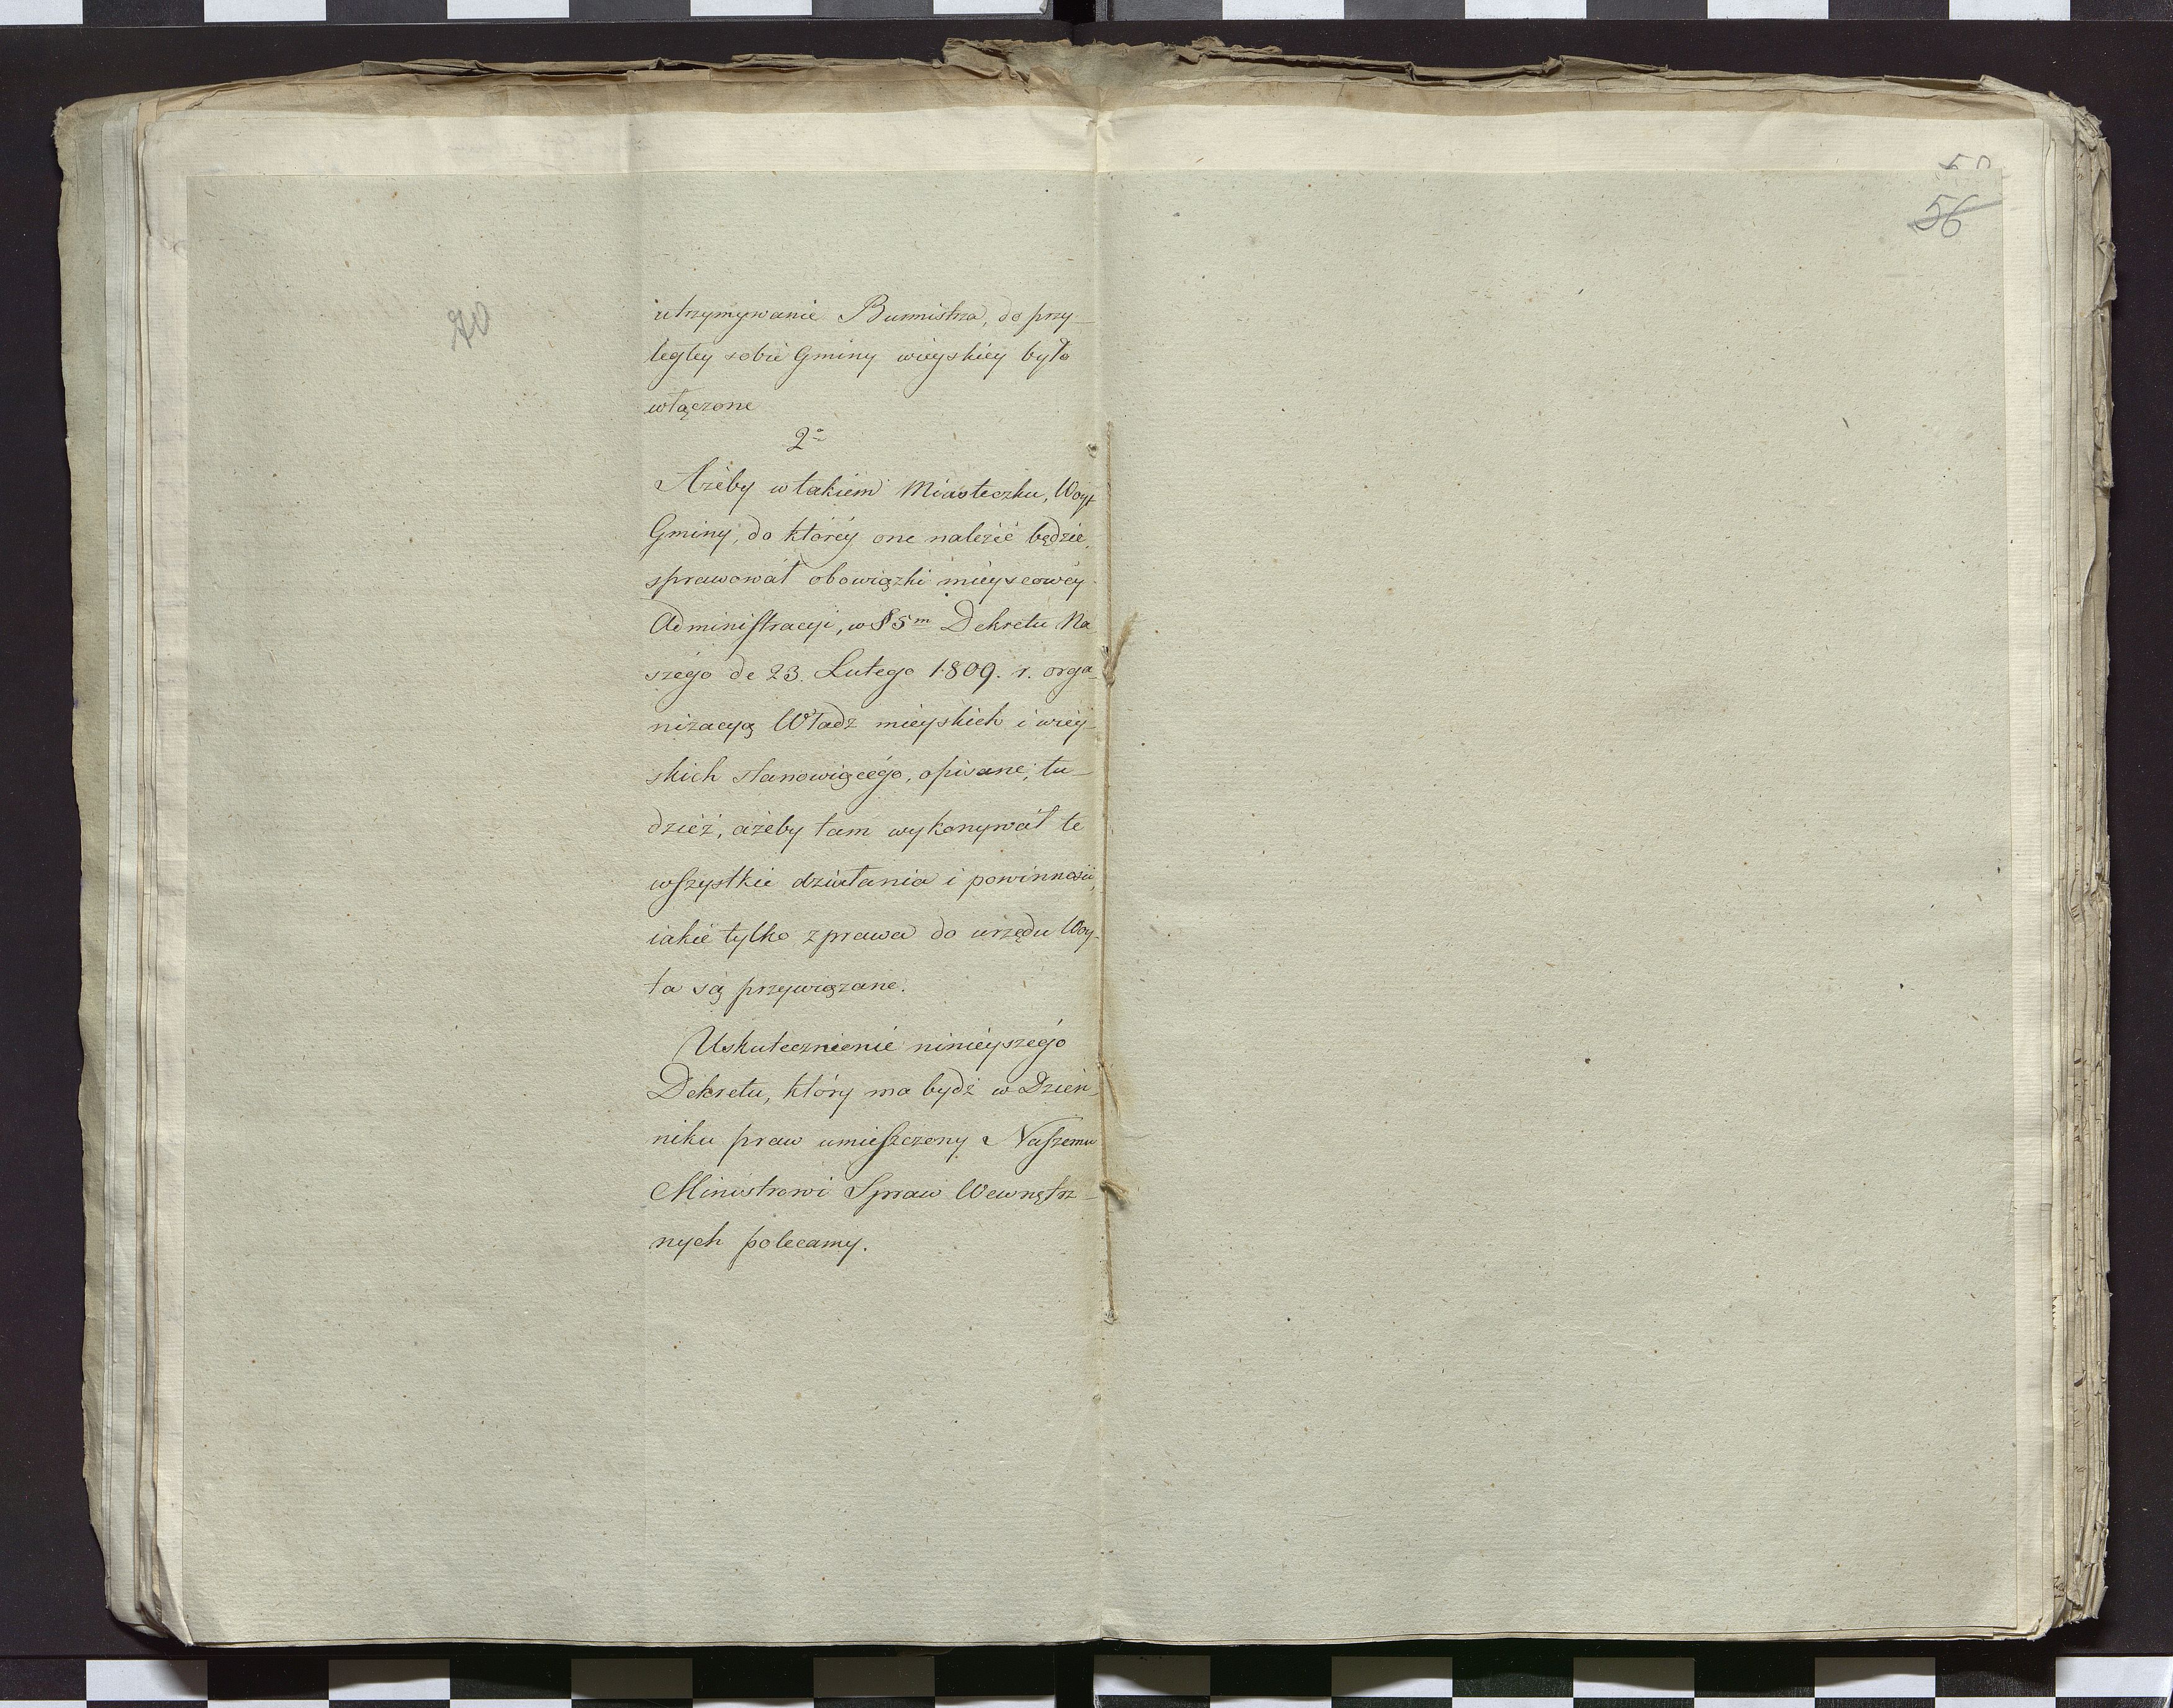 70
utrzymywanie Burmistrza, do przy-
ległey sobie Gminy wieyskiey było
włączone
2o
Ażeby w takiem Miasteczku, Woyt
Gminy, do któréy one należéć będzie,
sprawował obowiązki mieyscowéy
Administracyi, w § 5m Dekretu Na
szégo de 23. Lutego 1809. r. orga-
nizacyą Władz mieyskich i wiey-
skich stanowiącégo, opisane, tu-
dzież, ażeby tam wykonywał te
wszystkie działania i powinności,
iakie tylko z prawa do urzędu Woy-
ta są przywiązane.
Uskutecznienie ninieyszégo
Dekretu, który ma bydź w Dzien-
niku praw umieszczony Naszemu
Ministrowi Spraw Wewnętrz-
nych polecamy.
56